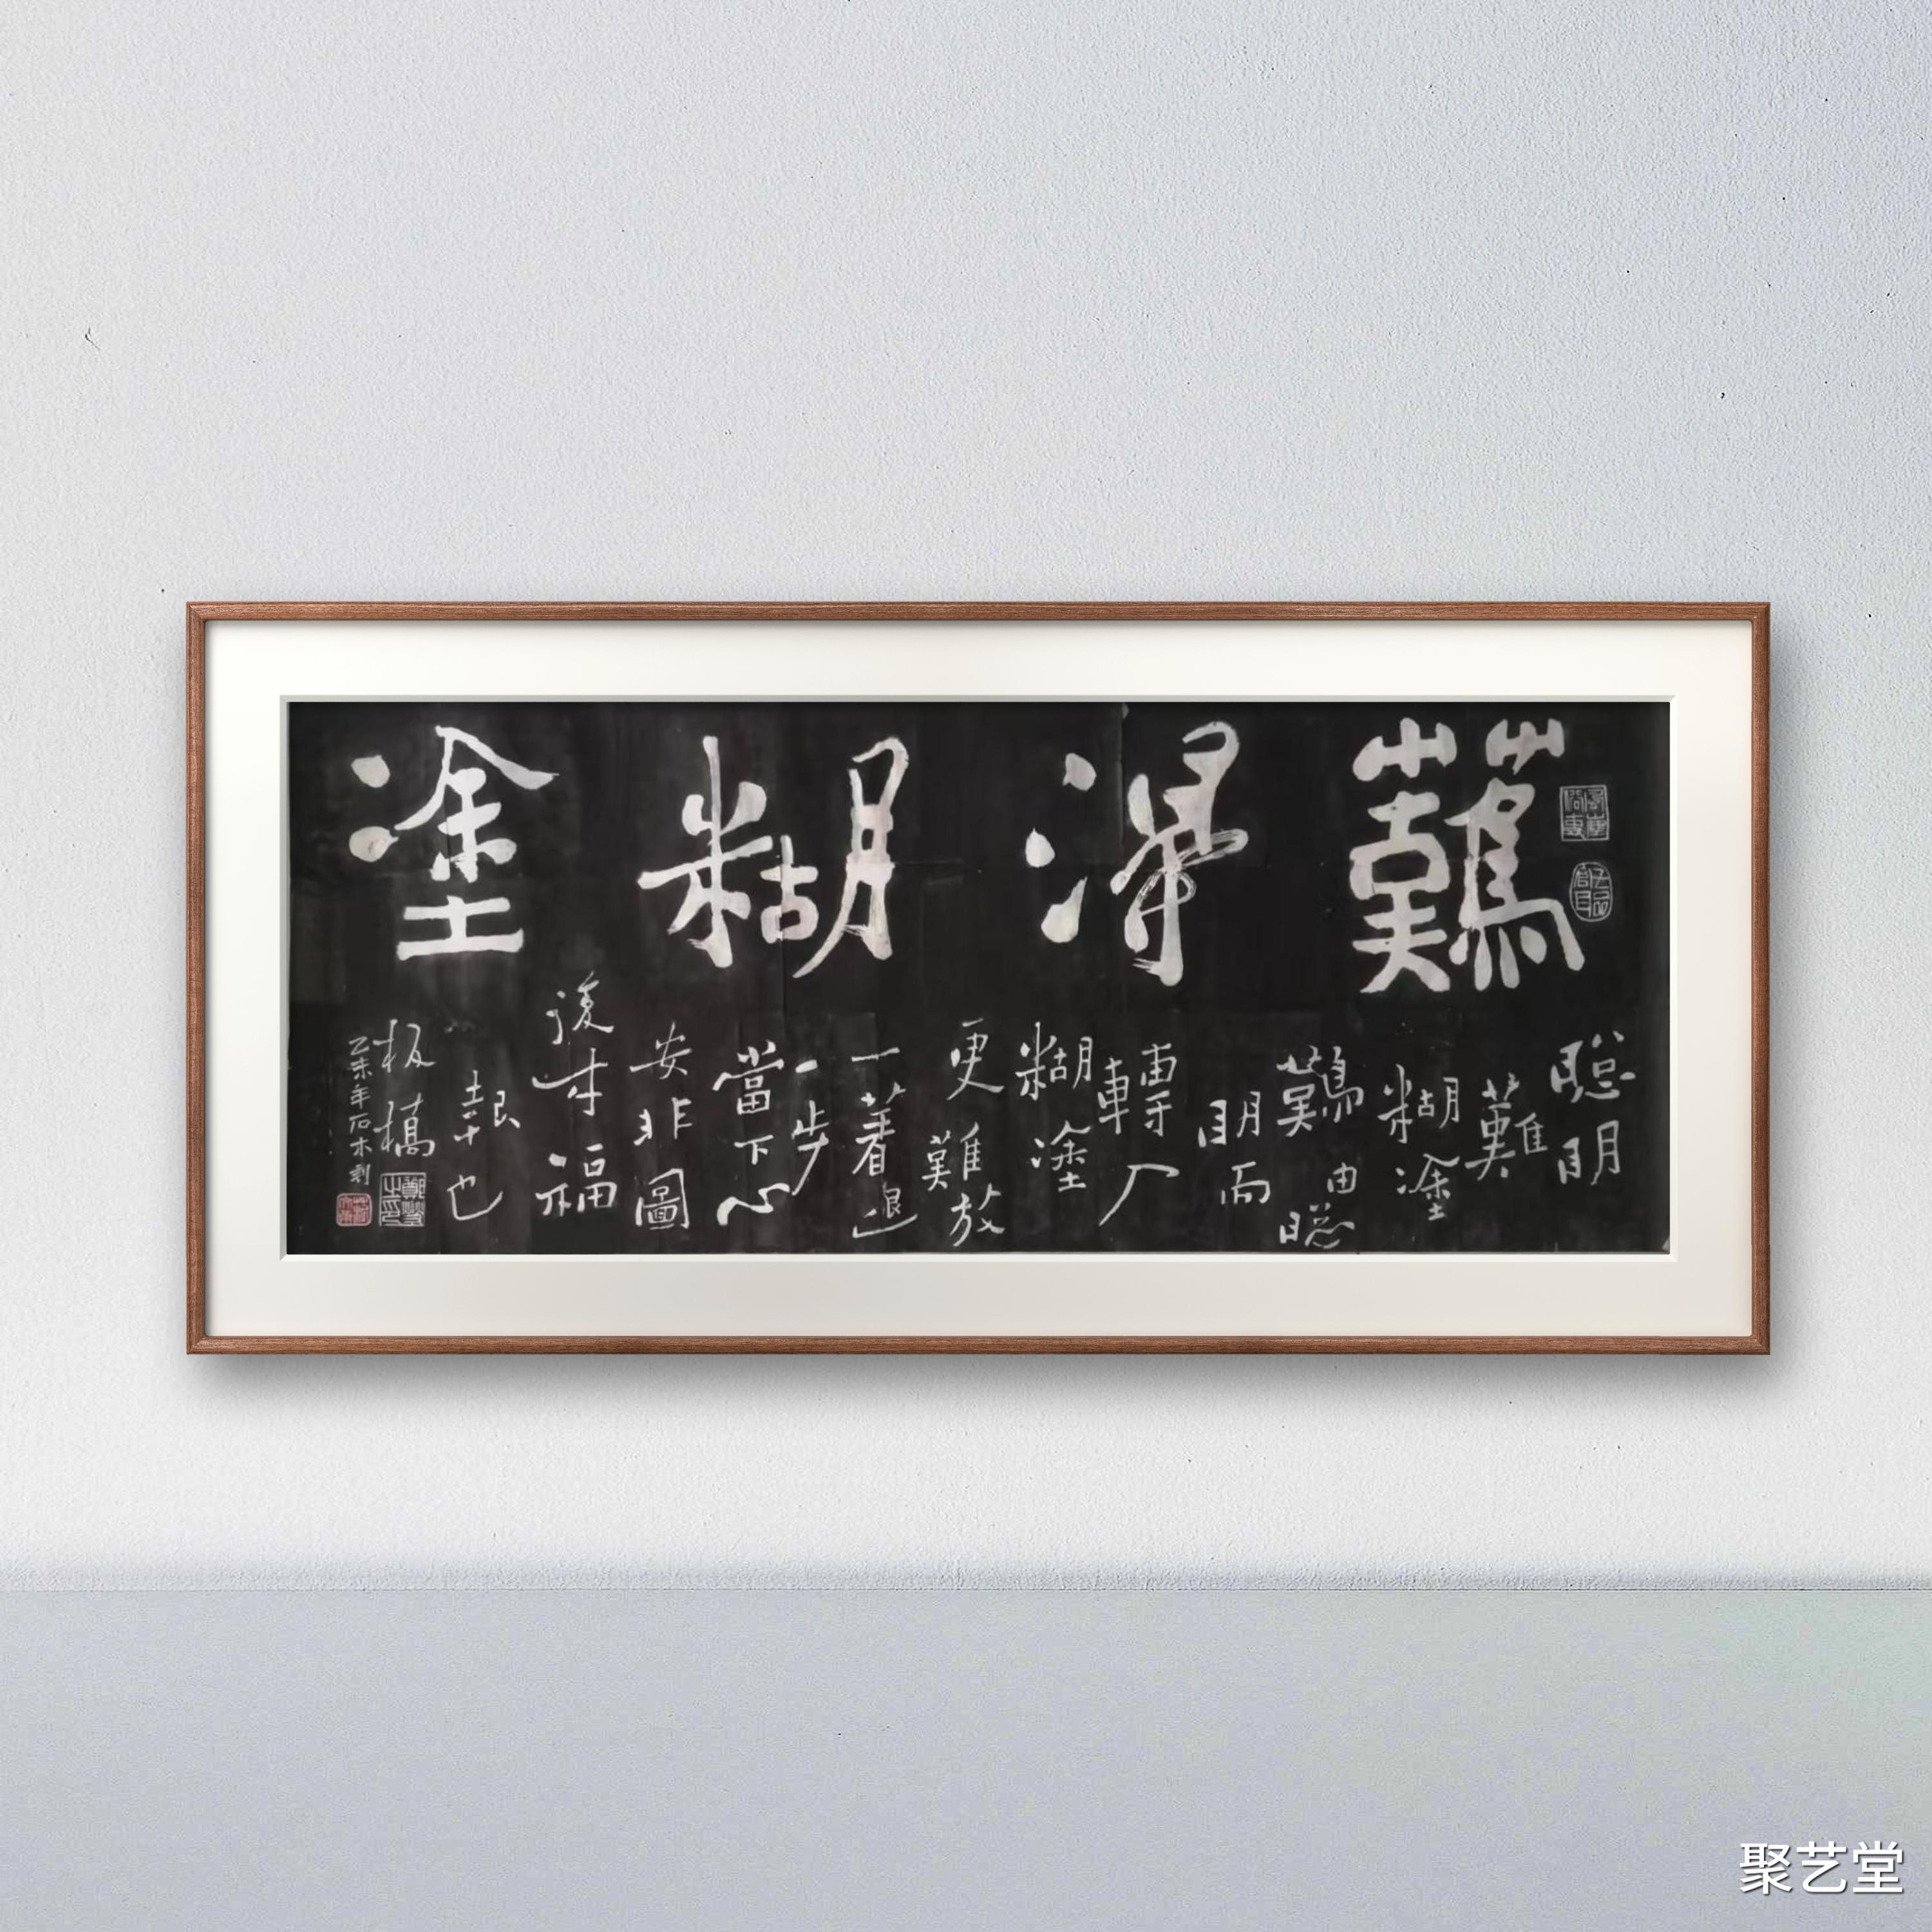 難得糊塗
聰明
難
糊塗
難由聰
明而
轉入
糊塗
更難放
一著退
一步
當下心
安非圖
後來福
報也
板橋
鄭燮之印
乙未年石木刻
聚艺堂